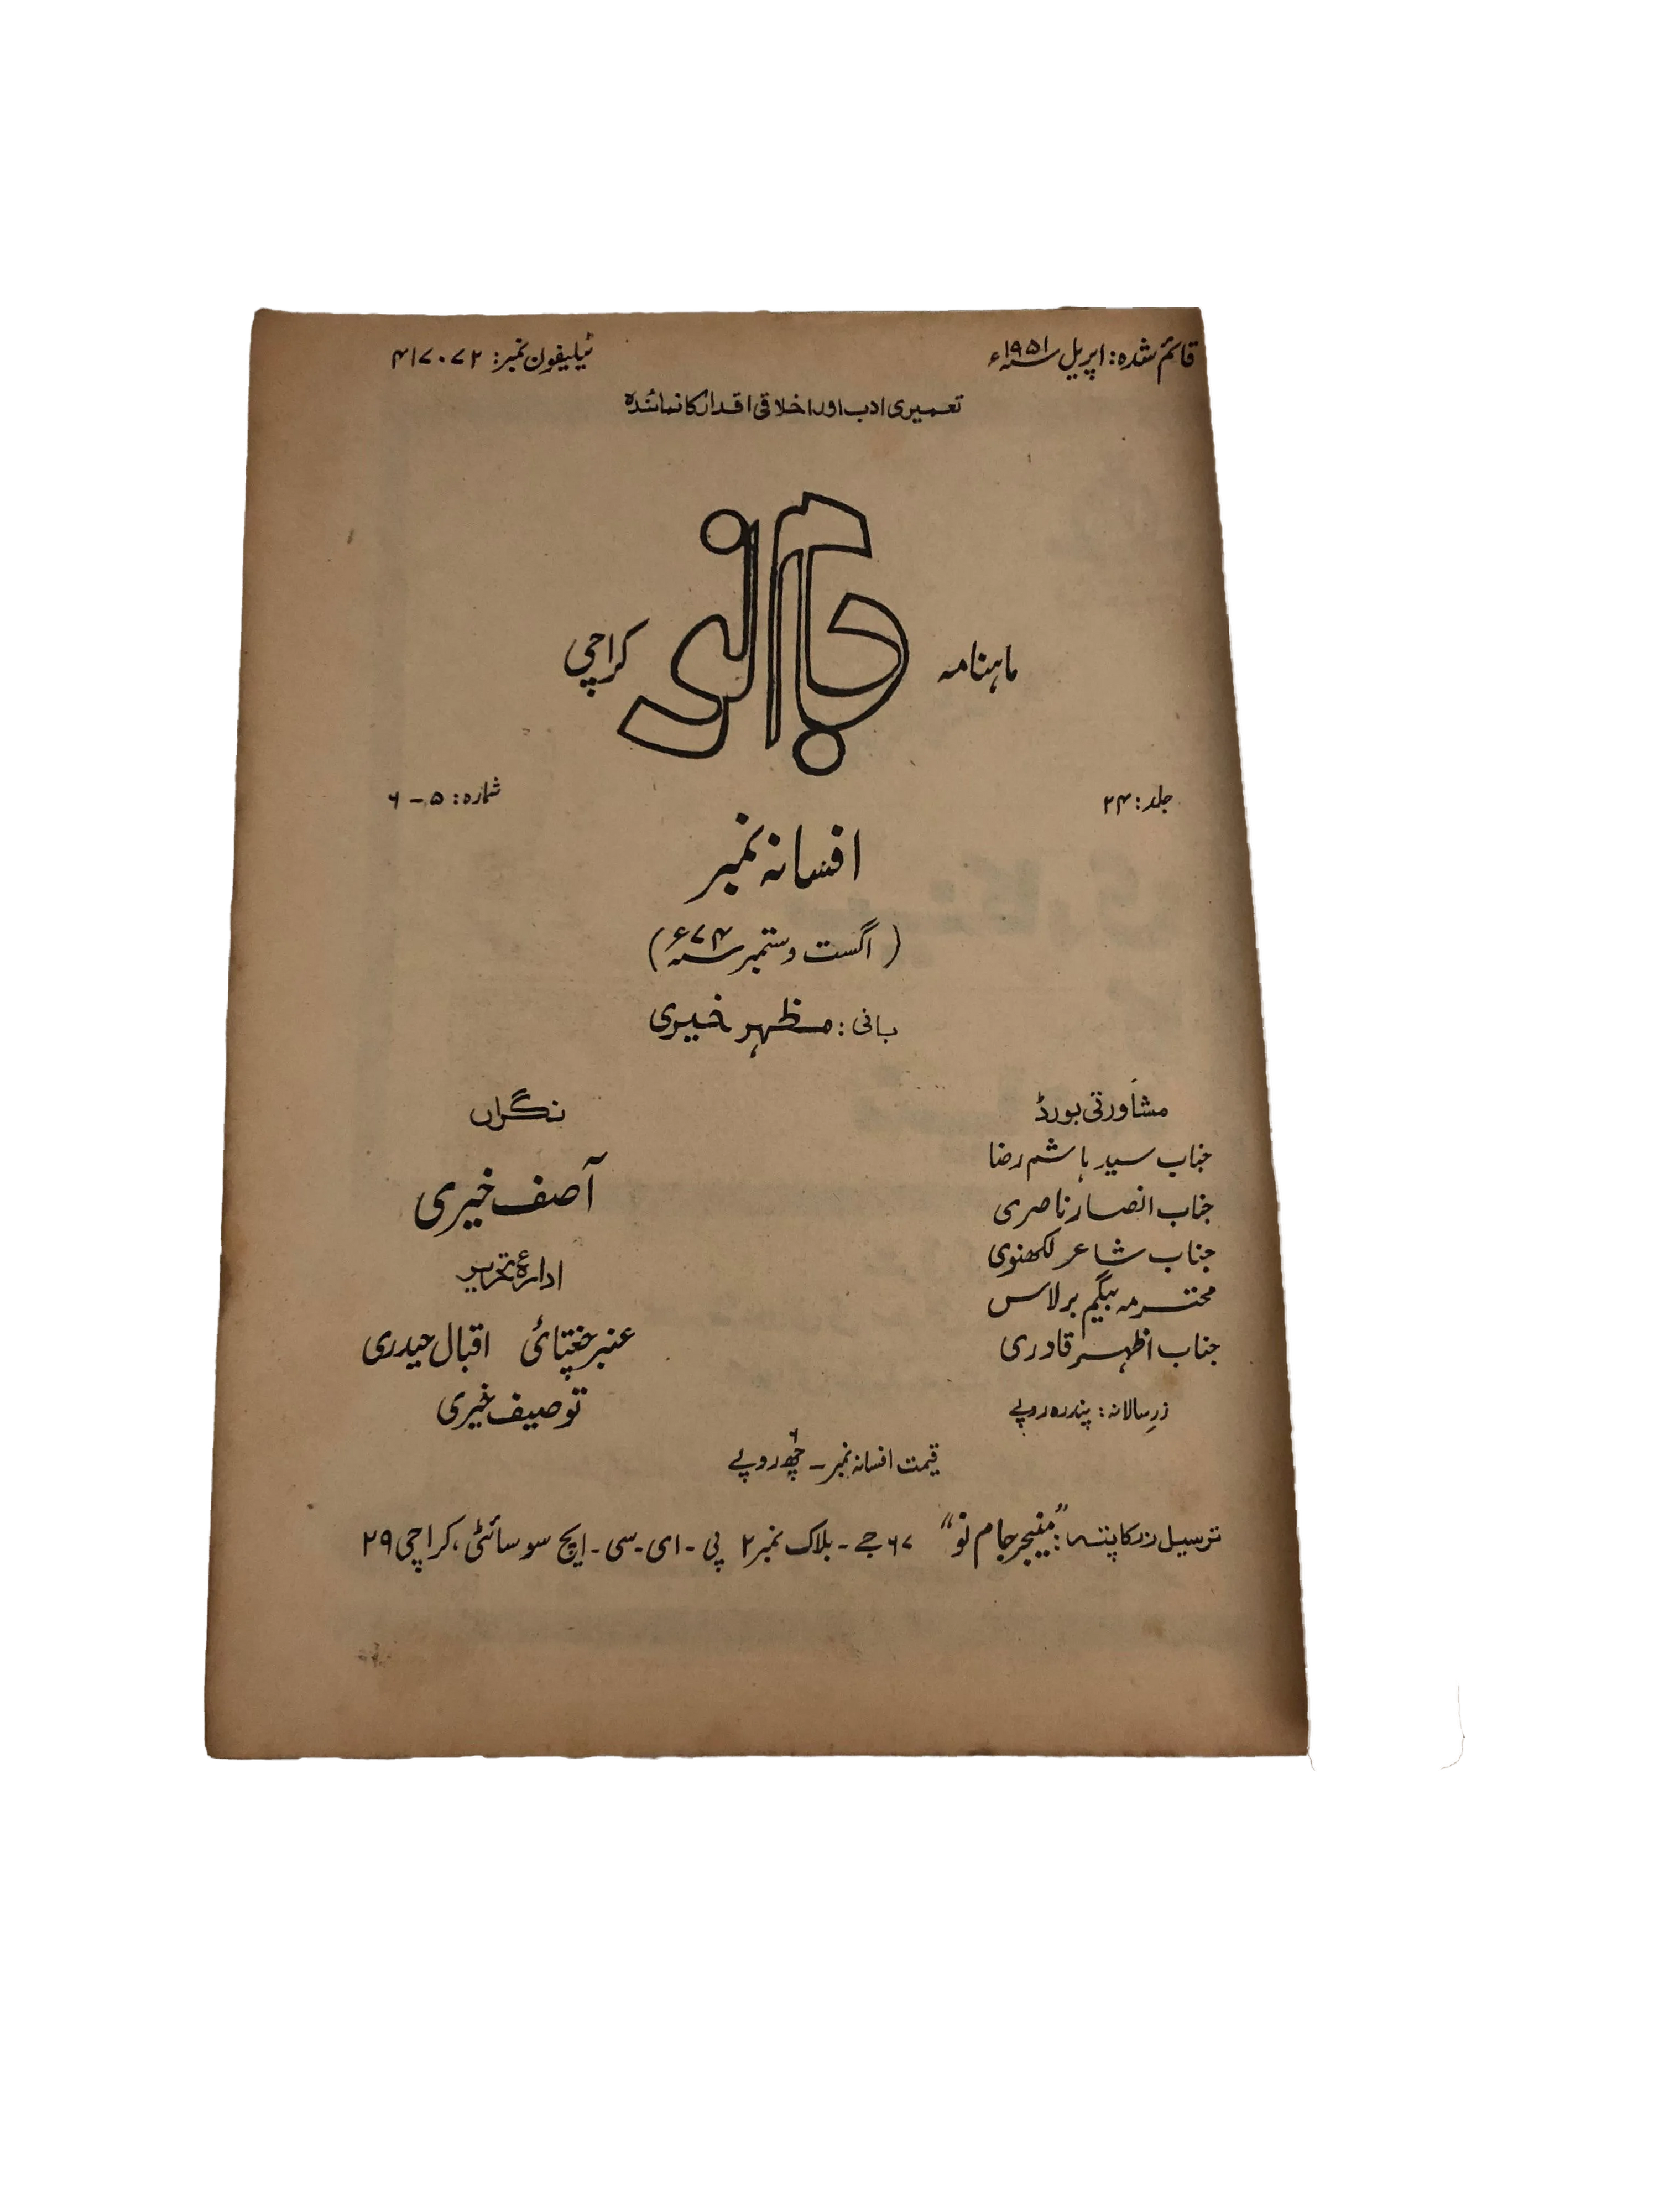 قائم شدہ: اپریل ۱۹۵۱ء
ٹیلیفون نمبر: ۴۱۷۰۷۲
تعمیری ادب اور اخلاقی اقدار کا نمائندہ
ماہنامہ جام نو کراچی
جلد: ۲۴
شمارہ: ۵ - ۶
افسانہ نمبر
(اگست و ستمبر ۷۴ء)
بانی: مظہر خیری
مشاورتی بورڈ
جناب سید ہاشم رضا
جناب انصار ناصری
جناب شاعر لکھنوی
محترمہ بیگم برلاس
جناب اظہر قادری
زر سالانہ: پندرہ روپے
نگراں
آصف خیری
ادارۂ تحریر
عنبر چغتائی اقبال حیدری
توصیف خیری
قیمت افسانہ نمبر - چھ روپے
ترسیل زر کا پتہ: "منیجر جام نو" ۶۷ جے - بلاک نمبر ۲ پی - ای - سی - ایچ سوسائٹی، کراچی ۲۹